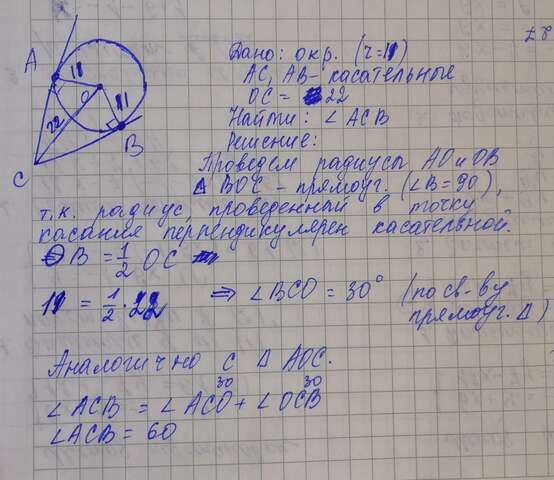 Z8
A
11
O
11
22
B
C
Дано: окр. (r=11)
AC, AB - касательные
OC = 22
Найти: ∠ ACB
Решение:
Проведем радиусы AO и OB
Δ BOC - прямоуг. (∠B = 90),
т.к. радиус, проведенный в точку
касания перпендикулярен касательной.
OB = 1/2 OC
11 = 1/2 · 22 ⇒ ∠ BCO = 30° (по св-ву
прямоуг. Δ)
Аналогично с Δ AOC.
30 30
∠ ACB = ∠ ACO + ∠ OCB
∠ ACB = 60